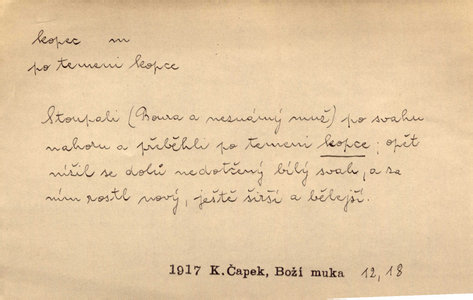 kopec m
po temeni kopce
Stoupali (Boura a neznámý muž) po svahu
nahoru a přiběhli po temeni kopce; opět
nížil se dolů nedotčený bílý svah, a za
ním rostl nový, ještě širší a bělejší.
1917 K.Čapek, Boží muka 12,18